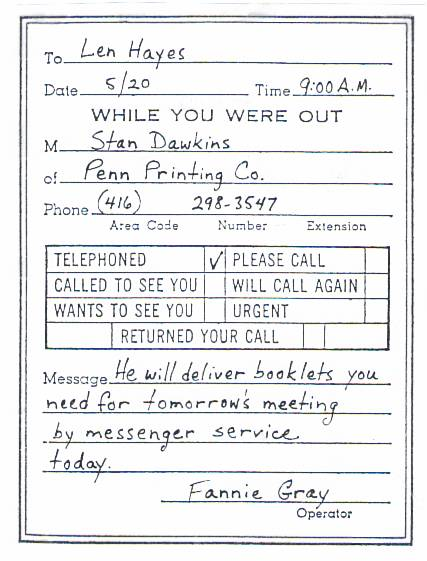 To Len Hayes
Date 5/20 Time 9:00 A.M.
WHILE YOU WERE OUT
M Stan Dawkins
of Penn Printing Co.
Phone (416) 298-3547
Area Code Number Extension
TELEPHONED ✓ PLEASE CALL
CALLED TO SEE YOU WILL CALL AGAIN
WANTS TO SEE YOU URGENT
RETURNED YOUR CALL
Message He will deliver booklets you
need for tomorrow's meeting
by messenger service
today.
Fannie Gray
Operator